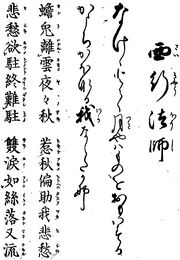 西行法師
なけゝとて月やはものをおもはする
かこちかほなる我なみたかな
蟾兎離雲夜々秋　惹秋偏助我悲愁
悲愁欲駐終難駐　雙涙如絲落又流